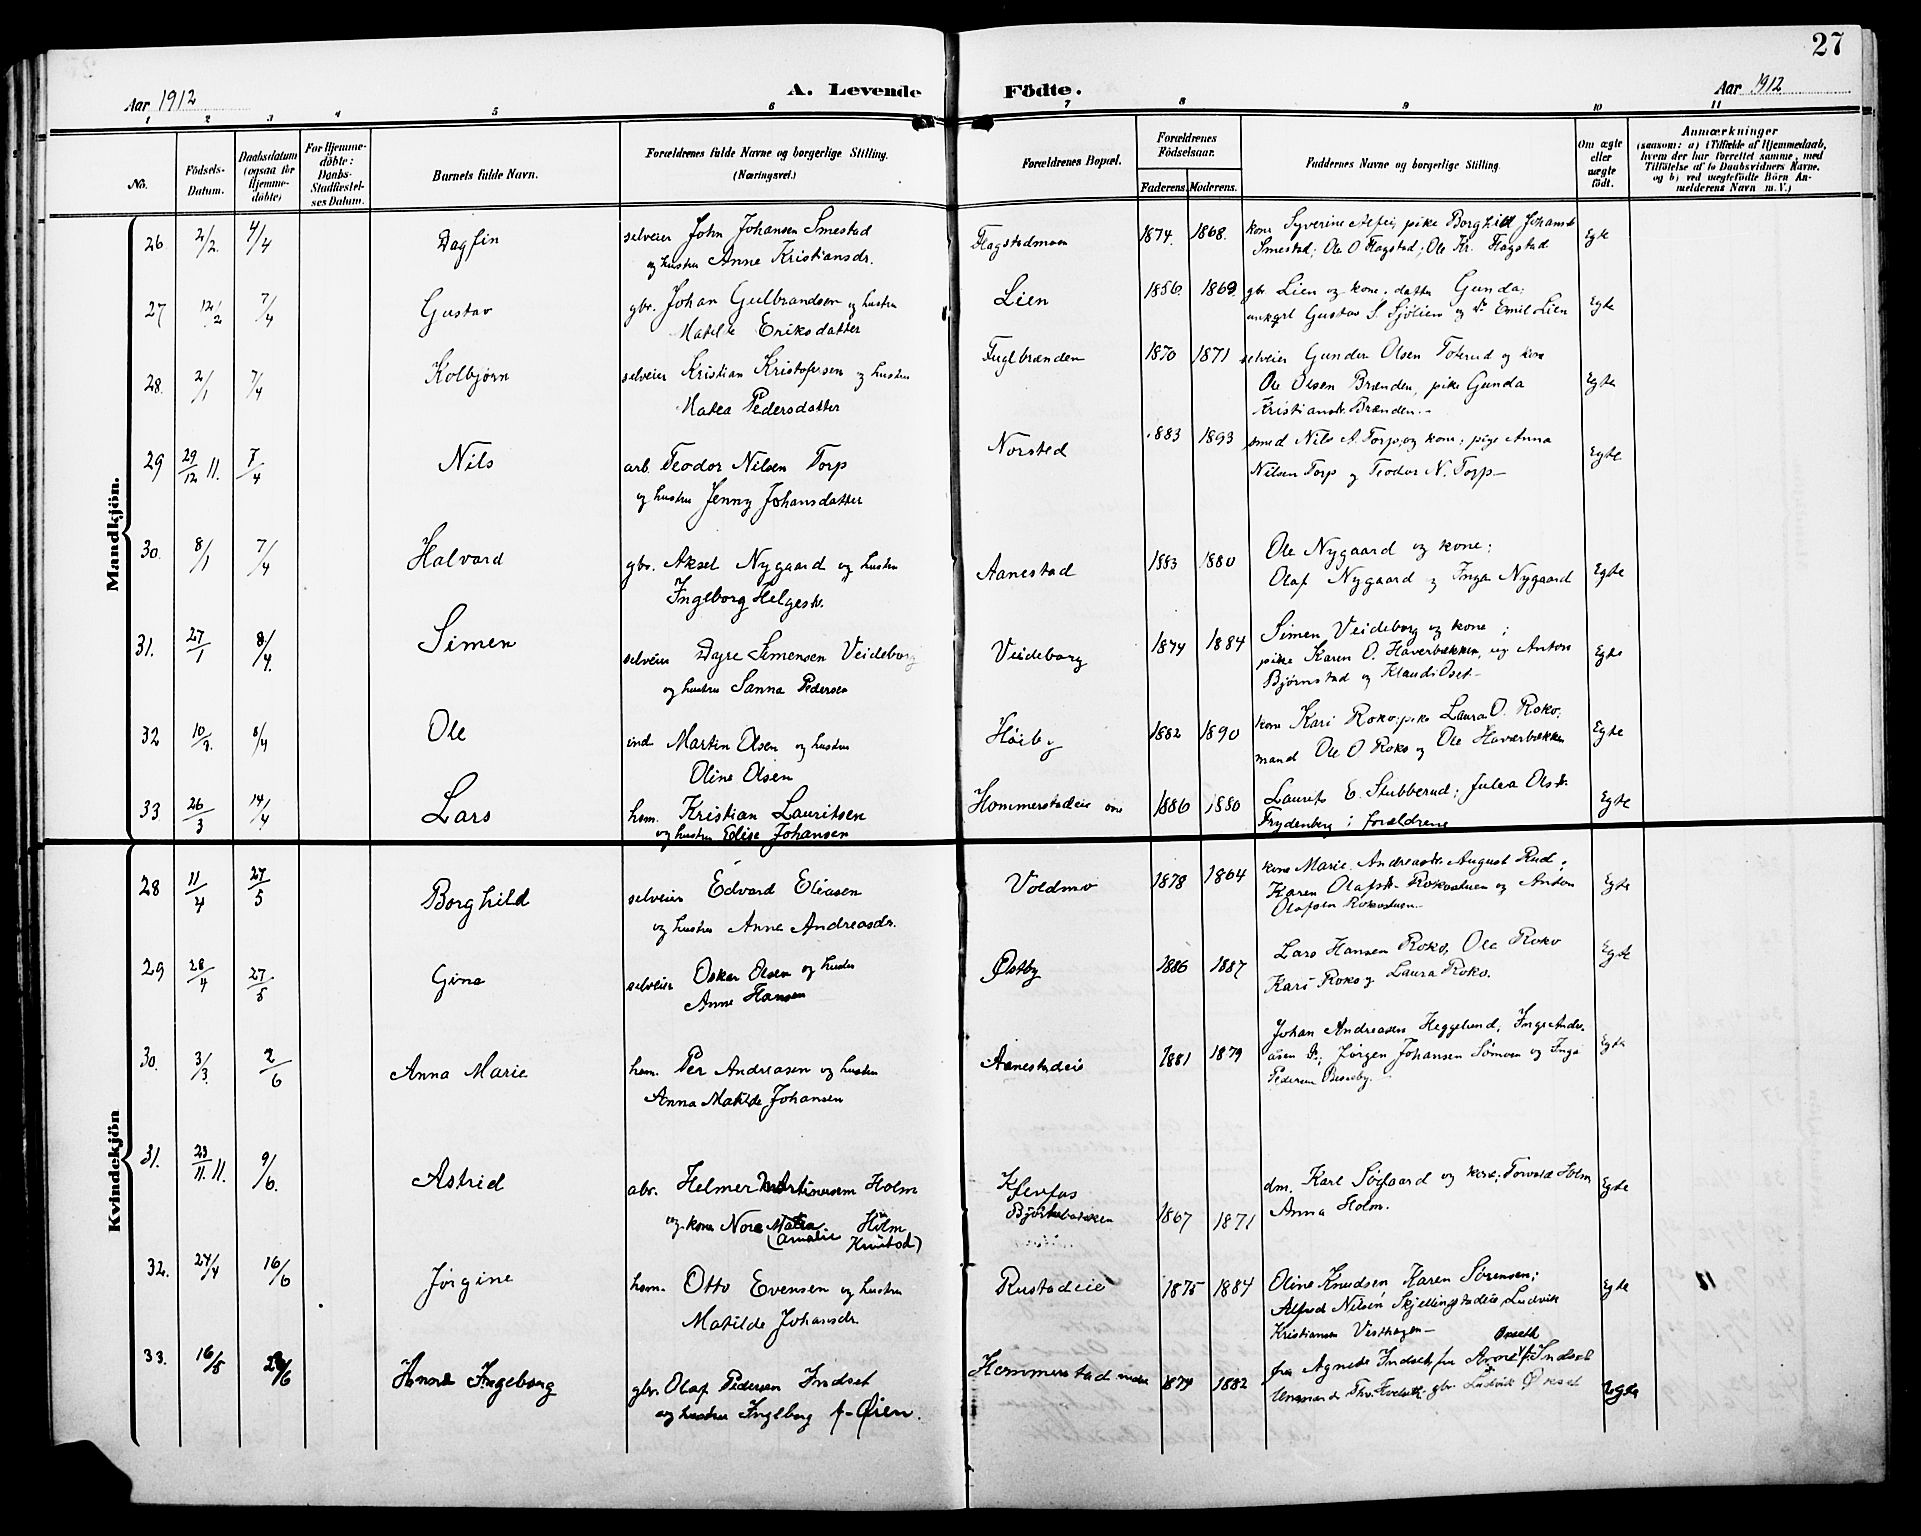 27
Aar 1912
A. Levende Födte.
Aar 1912
1 2 3 4 5 6 7 8 9 10 11
No.
Födsels-
Datum.
Daabsdatum
(ogsaa for
Hjemme-
döbte)
For Hjemme-
döbte:
Daabs-
Stadfæstel-
ses Datum.
Barnets fulde Navn.
Forældrenes fulde Navne og borgerlige Stilling.
(Næringsvei.)
Forældrenes Bopæl.
Forældrenes
Födselsaar.
Faderens. Moderens.
Faddernes Navne og borgerlige Stilling.
Om ægte
eller
uægte
födt.
Anmærkninger
(saasom: a) i Tilfælde af Hjemmedaab,
hvem der har forrettet samme, med
Tilföielse af to Daabsvidners Navne,
og b) ved uægtefödte Börn An-
melderens Navn m. V.)
Mandkjön.
26 2/2. 4/4 Dagfin selveier John Johansen Smestad Flagstadmoen 1874. 1868. kone Syverine pike Borghild Johans
og hustru Anne Kristiansdr. Smestad; Ole O Flagstad; Ole Kr. Flagstad Egte
27 12/2 7/4 Gustav gbr. Johan Gulbrandsen og hustru Lien 1856. 1869 gbr Lien og kone, datter Gunda;
Matilde Eriksdatter ungkarl Gustav S. Sjølien og Emil Lien Egte
28. 2/1 7/4 Kolbjørn selveier Kristian Kristofersen og hustru Fuglbrænden 1870 1871 selveier Gunder Olsen Toterud og kone
Matea Pedersdatter Ole Olsen Brænden, pike Gunda Egte
Kristianstr. Brænden.-
29 29/12 11. 7/4 Nils arb. Teodor Nilsen Torp Norsted 1883 1893 smed Nils A. Torp, og kone; pige Anna
og hustru Jenny Johansdatter Nilsen Torp og Teodor N. Torp- Egte
30. 8/1 7/4 Halvard gbr. Aksel Nygaard og hustru Aanestad 1883 1880 Ole Nygaard og kone;
Ingeborg Helgestr. Olaf Nygaard og Inga Nygaard Egte
31. 27/1 8/4. Simen selveier Dyre Simensen Veideborg Veideborg 1874 1884 Simen Veideborg og kone;
og hustru Sanna Pedersen pike Karen O. Haverbækken, og Anton Egte
Bjørnstad og Klaudi Oset-
32 10/3. 8/4 Ole ind. Martin Olsen og hustru Høiby 1882 1890 kone Kari Roko; pike Laura O. Roko;
Oline Olsen mand Ole O Roko og Ole Haverbækken Egte
33 26/3 14/4 Lars hsm. Kristian Lauritsen Hommerstadeie 1886 1880 Laurits E. Stubberud; Julea Olstr.
og hustru Elise Johansen Frydenberg; forældrene Egte
Kvindekjön
28 11/4 27/5 Borghild selveier Edvard Eliasen Voldmo 1878 1864 kone Marie Andreastr. August Rud;
og hustru Anne Andreasdr. Karen Olafstr. Rokostuen og Anton Egte
Olafsen Rokostuen.-
29 28/4 27/5 Gina selveier Oskar Olsen og hustru Østby 1886 1887 Lars Hansen Roko, Ole Roko Egte
Anne Hansen Kari Roko og Laura Roko.
30. 3/3. 2/6 Anna Marie hsm. Per Andreasen og hustru Aanestadeie 1881 1879 Johan Andreasen Heggelund, Inga Andre-
Anna Matilde Johansen asen Jørgen Johansen Sømoen og Inga Egte
Pedersen
31. 23/11. 11. 9/6. Astrid abr. Helmer Martinusen Holm Klevfos dm. Karl Søgaard og kone; Torvald Holm
og kone Nora Matea Holm Bjørkebakken 1867 1871 Anna Holm. Egte
(Amalie Knutsd)
32. 24/4 16/6 Jørgine hsm. Otto Evensen og hustru Rustadeie 1875 1884 Oline Knudsen Karen Sørensen;
Matilde Johansdr. Alfred Nilsen Skjellingstadeie, Ludvik Egte
Kristiansen Vesthagen-
33. 16/5 /6 Anne Ingeborg gbr. Olaf Pedersen Indset Hommerstad 1879 1882 fru Agnete Indset, fru Indset
og hustru Ingeborg f. Øien. gbr. Ludvik Ørset Egte